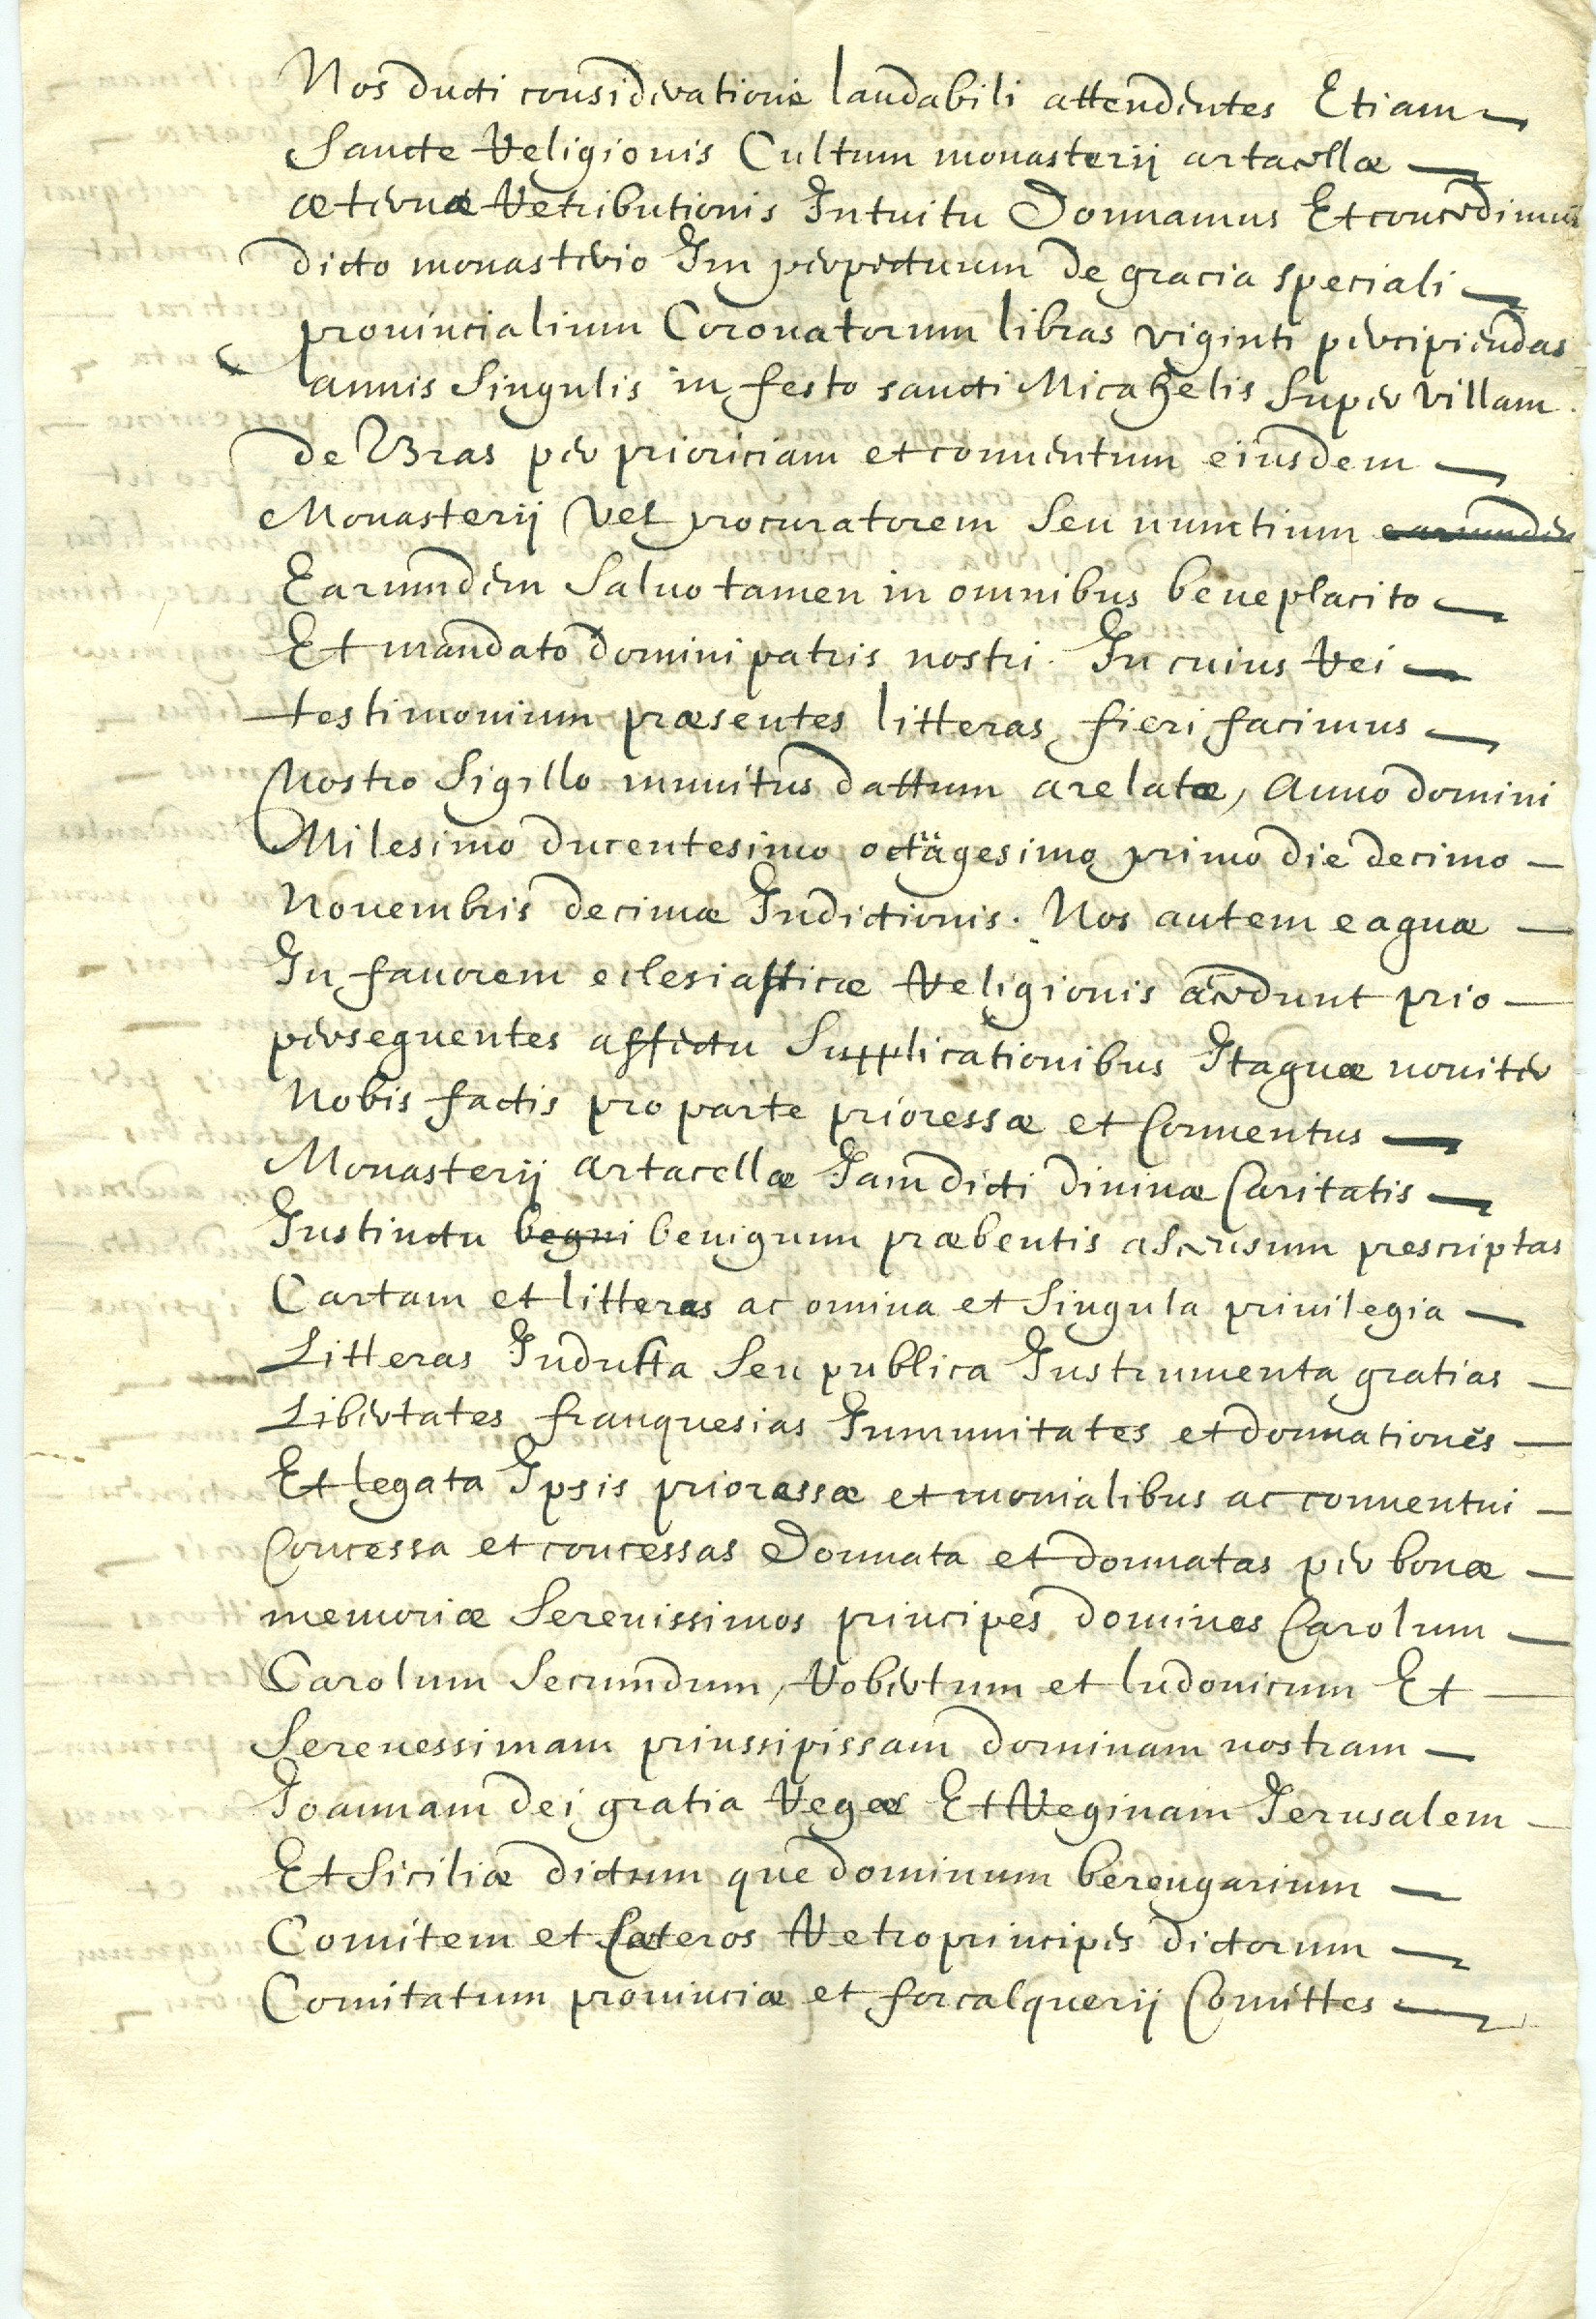 Nos ducti consideratione laudabili attendentes Etiam
Sancte Religionis Cultum monasterij artacellæ
æternæ Retributionis Intuitu Donnamus Et concedimus
dicto monasterio Im perpetuum de gracia speciali
prouincialium Coronatorum libras viginti percipiendas
annis Singulis in festo sancti Micahelis Super villam
de Bras per prioriciam et conuentum eiusdem
Monasterij vel procuratorem Seu numtium earumdem
Earumdem Saluo tamen in omnibus beneplacito
Et mandato domini patris nostri. In cuius Rei
testimonium præsentes litteras fieri facimus
Nostro Sigillo munitus dattum arelatæ, Anno domini
Milesimo ducentesimo octägesimo primo die decimo
Nouembris decimæ Indictionis. Nos autem eaquæ
In fauorem eclesiasticæ Religionis acedunt prio
persequentes affectu Supplicationibus Itaquæ nouiter
Nobis factis pro parte prioressæ et Conuentus
Monasterij artacellæ Iam dicti diuinæ Caritatis
Instinctu begni benignum præbentis asensum prescriptas
Cartam et litteras ac omina et Singula priuilegia
Litteras Indulta Seu publica Instrumenta gratias
Libertates franquesias Immunitates et donnationes
Et legata Ipsis prioressæ et monialibus ac conuentui
Concessa et concessas Donnata et donnatas per bonæ
memoriæ Serenissimos principes dominos Carolum
Carolum Secumdum, Robertum et ludouicum Et
Serenessimam prinssipissam dominam nostram
Joannam dei gratia Regæ Et Reginam Jerusalem
Et Siciliæ dictum que dominum berengarium
Comitem et Cæteros Retroprincipes dictorum
Comitatum prouinciæ et forcalquerij Comittes